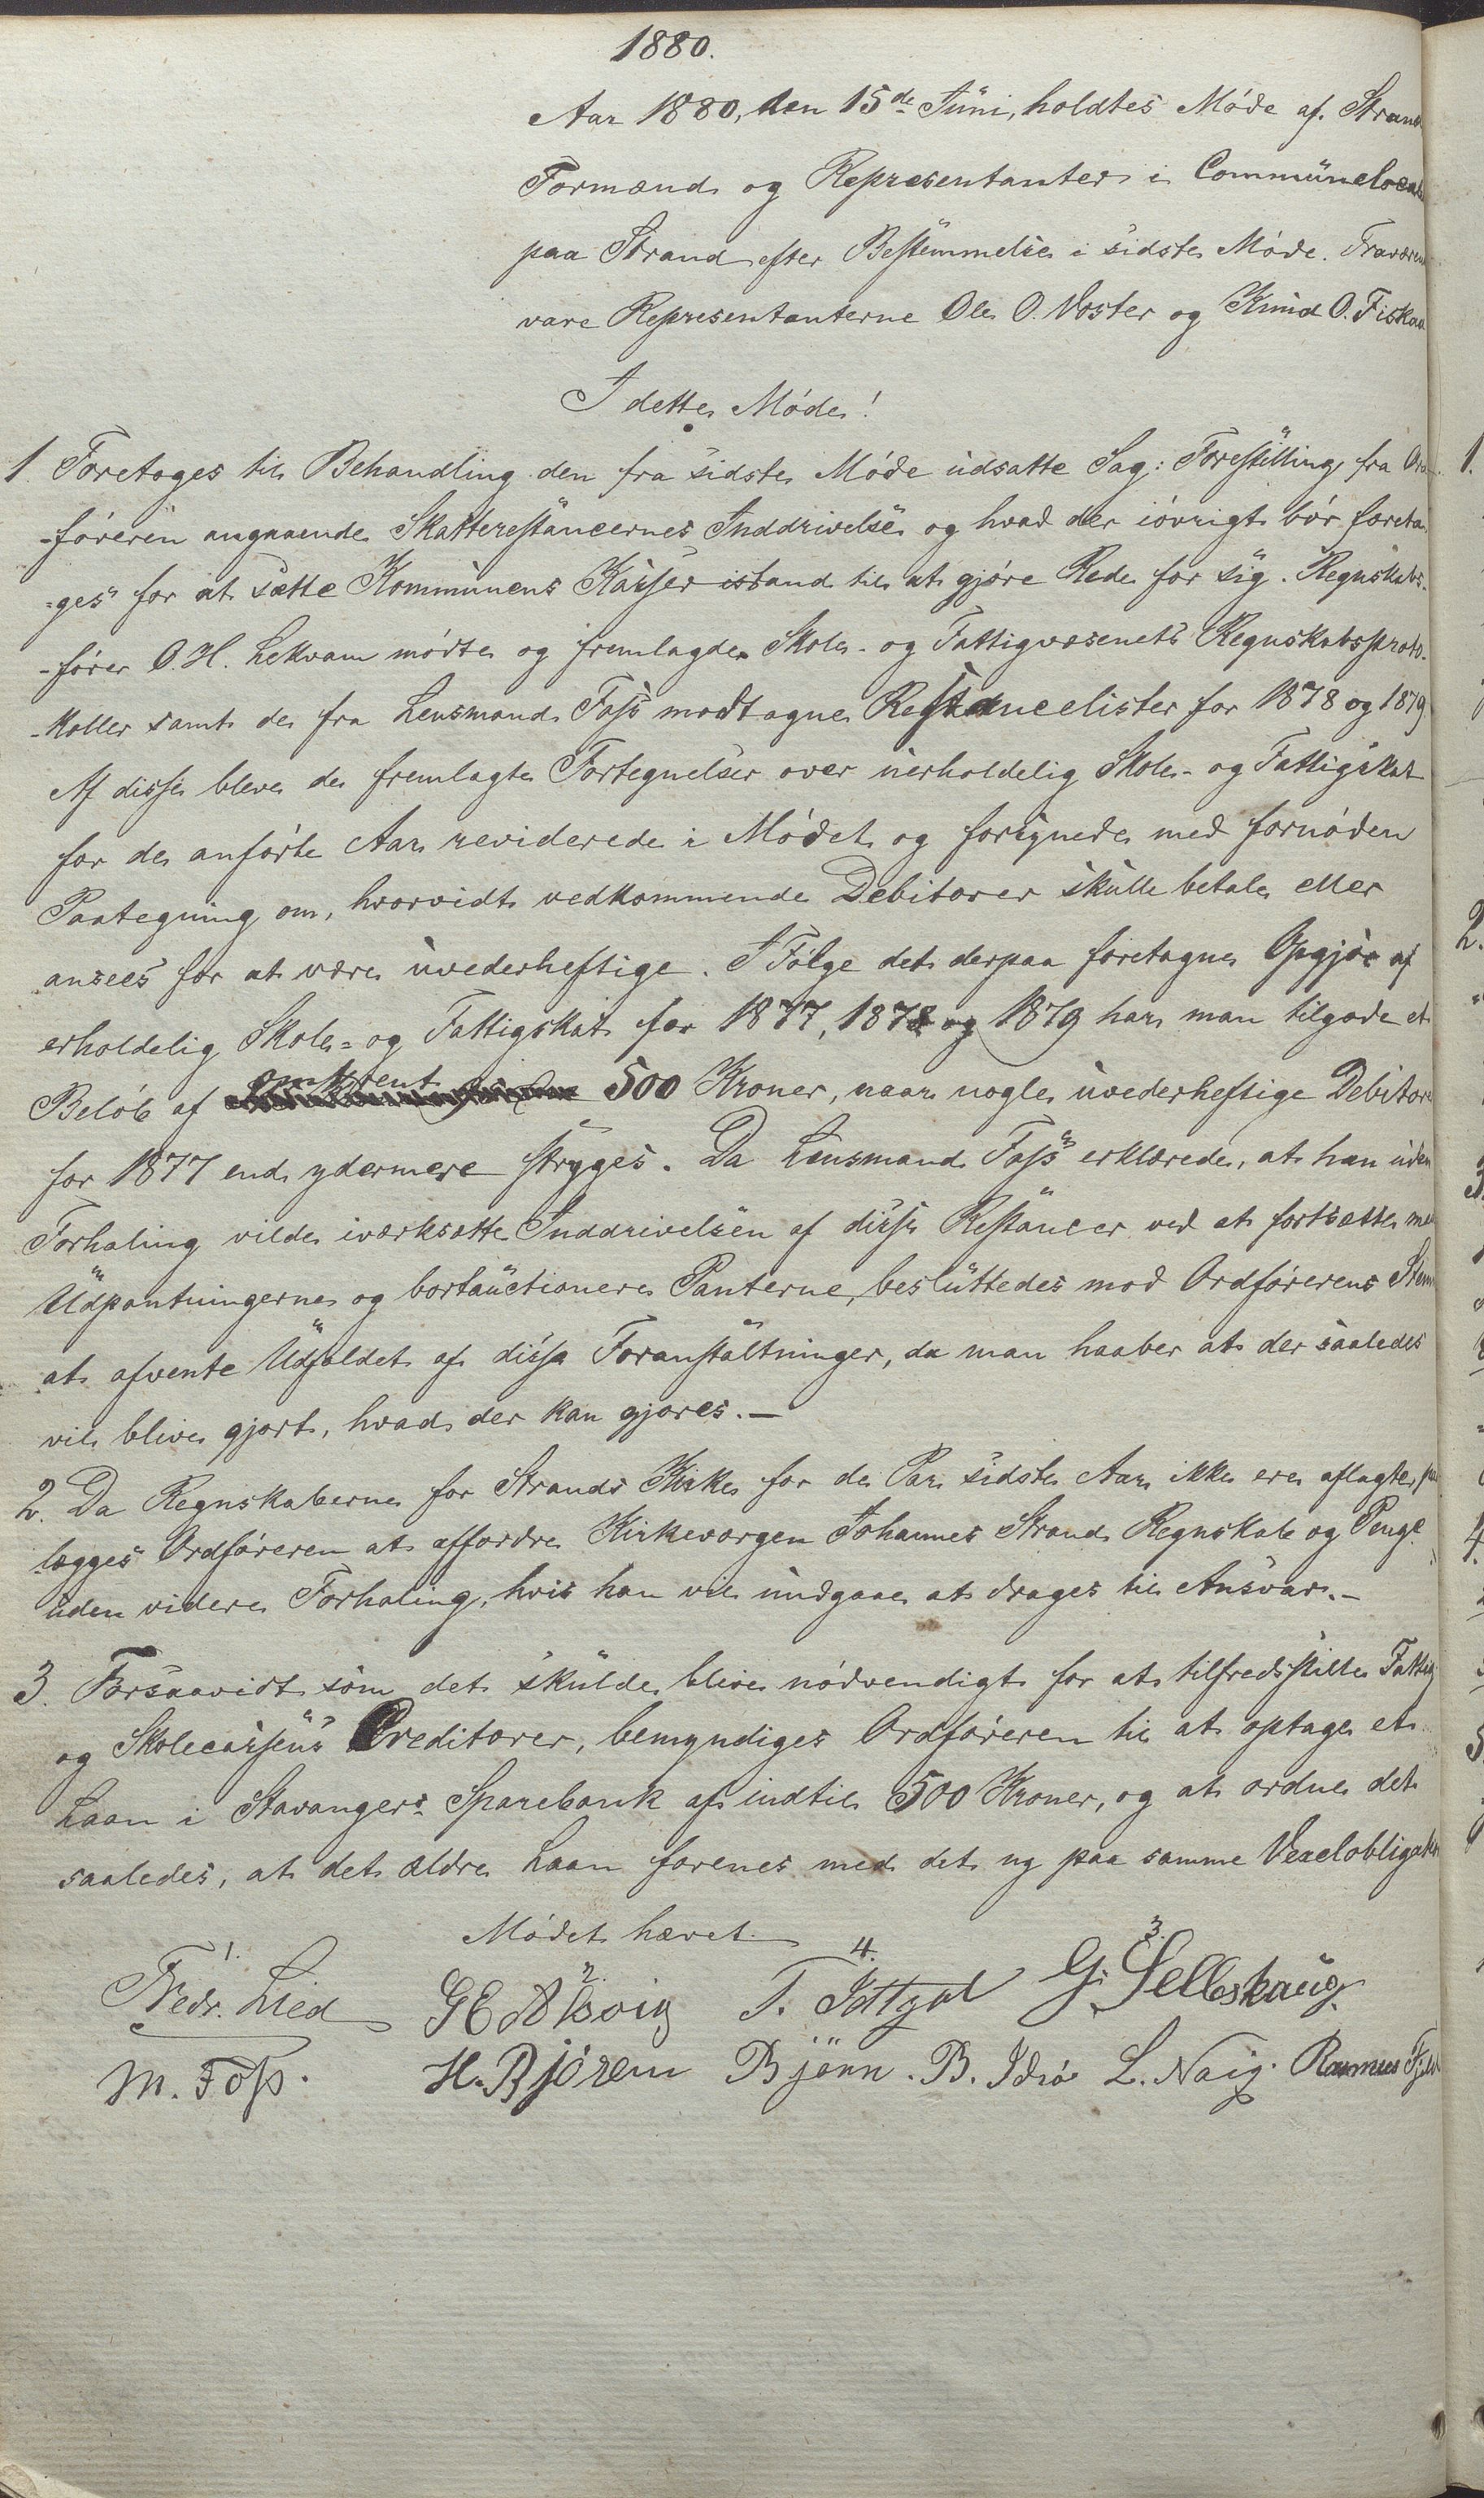 1880.
Aar 1880, den 15de Juni, holdtes Møde af Strand
Formænd og Representanter i Communelocal
paa Strand efter Bestemmelse i sidste Møde. Fraværen
vare Representanterne Ole O. Voster og Knud O. Fiskaa
I dette Møde!
1. Foretoges til Behandling den fra sidste Møde udsatte Sag: Forestilling fra Ord
-føreren angaaende Skatterestancernes Inddrivelse og hvad der iøvrigt bør foreta
=ges for at sætte Kommunens Kasser istand til at gjøre Rede for sig. Regnskabs-
-fører O. H. Lekvam mødte og fremlagde Skole- og Fattigvæsenets Regnskabsproto-
-koller samt de fra Lensmand Foss modtagne Restancelister for 1878 og 1879
Af disse bleve de fremlagte Fortegnelser over uerholdelig Skole- og Fattigskat
for de anførte Aar reviderede i Mødet og forsynede med fornøden
Paategning om, hvorvidt vedkommende Debitorer skulle betale eller
ansees for at være uvederheftige. I Følge det derpaa foretagne Opgjør af
erholdelig Skole= og Fattigskat for 1877, 1878 og 1879 har man tilgode et
omtrent
Beløb af 500 Kroner, naar nogle uvederheftige Debitore
for 1877 end ydermere stryges. Da Lensmand Foss erklærede, at han uden
Forhaling vilde iværksætte Inddrivelsen af disse Restancer ved at fortsætte med
Udpantningerne og bortauctionere Panterne, besluttedes mod Ordførerens Stem
at afvente Udfaldet af disse Foranstaltninger, da man haaber at der saaledes
vil blive gjort, hvad der kan gjøres.—
2. Da Regnskaberne for Strands Kirke for de Par sidste Aar ikke ere aflagte, paa
lægges Ordføreren at affordre Kirkeværgen Johannes Strand Regnskab og Penge
uden videre Forhaling, hvis han vil undgaae at drages til Ansvar.—
3. Forsaavidt som det skulde blive nødvendigt for at tilfredsstille Fattig
og Skolecassens Creditorer, bemyndiges Ordføreren til at optage et
Laan i Stavangers Sparebank af indtil 500 Kroner, og at ordne det
saaledes, at det ældre Laan forenes med det ny paa samme Vexelobligation
Mødet hævet
1. 2. 4. 3.
Fredr. Lied G E T. G. Selleskaug
M. Foss. H. Bjøren Bjønn. B. Idsø L. Naig. Rasmus Fjeld